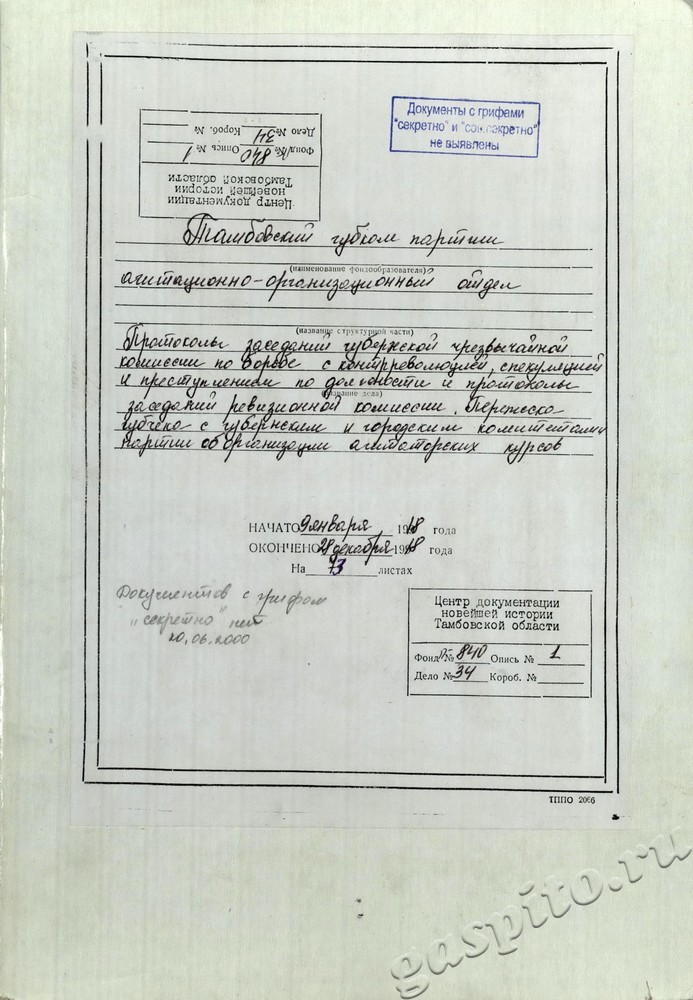 Документы с грифами
"секретно" и "сов.секретно"
не выявлены
Центр документации
новейшей истории
Тамбовской области
Фонд № 840 Опись № 1
Дело № 34 Короб. №
Тамбовский губком партии
(наименование фондообразователя)
агитационно-организационный отдел
(название структурной части)
Протоколы заседаний губернской чрезвычайной
комиссии по борьбе с контрреволюцией, спекуляцией
и преступлением по должности и протоколы
(название дела)
заседаний ревизионной комиссии. Переписка
губчека с губернским и городским комитетами
партии об организации агитаторских курсов
НАЧАТО 9 января 1918 года
ОКОНЧЕНО 28 декабря 1918 года
На 73 листах
Документов с грифом
"секретно" нет
20.06.2000
Центр документации
новейшей истории
Тамбовской области
Фонд П-№ 840 Опись № 1
Дело № 34 Короб. №
ТППО 2066
gaspito.ru